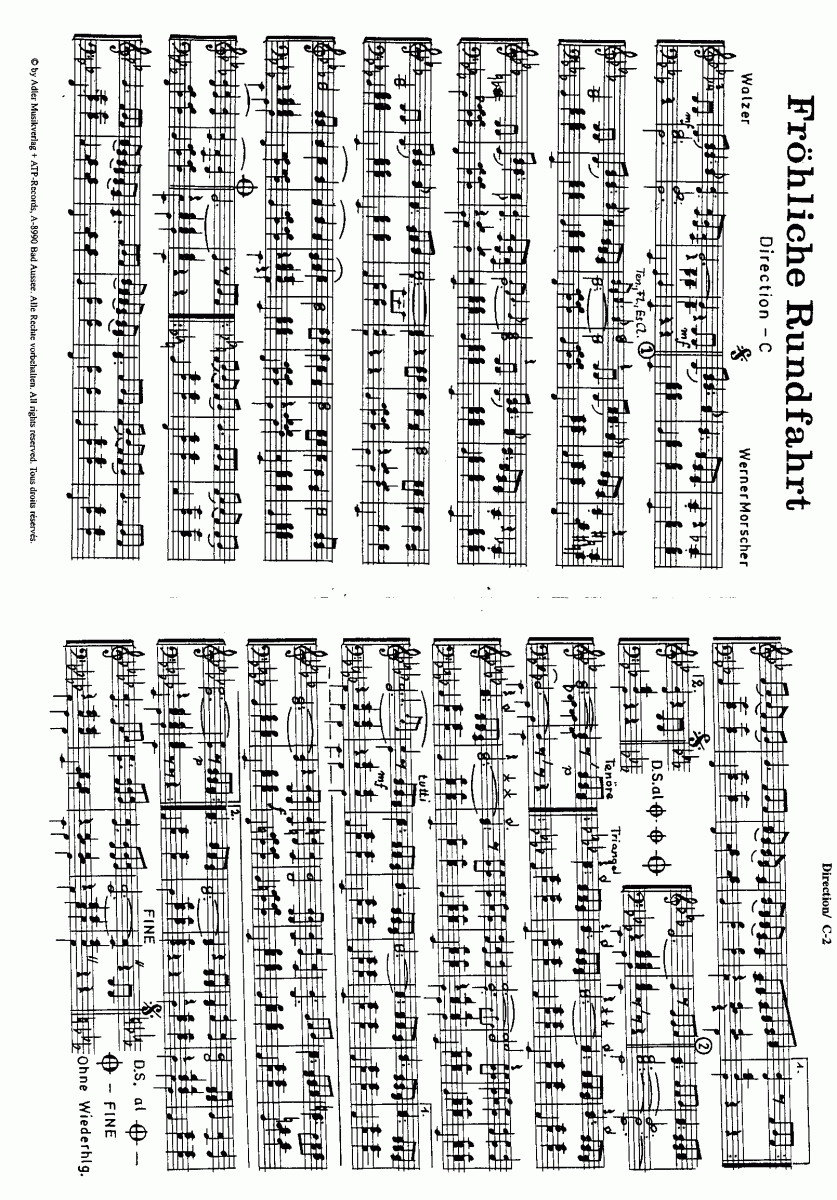 Fröhliche Rundfahrt
Direction - C
Walzer
Werner Morscher
mf
mf
1
Ten., Fl., Es Cl.
© by Adler Musikverlag + ATP-Records, A-8990 Bad Aussee. Alle Rechte vorbehalten. All rights reserved. Tous droits réservés.
Direction/ C-2
1.
2.
D.S. al
2
Tenöre
Triangel
p
tutti
mf
1.
f
2.
p
FINE
D.S. al
- FINE
Ohne Wiederhlg.